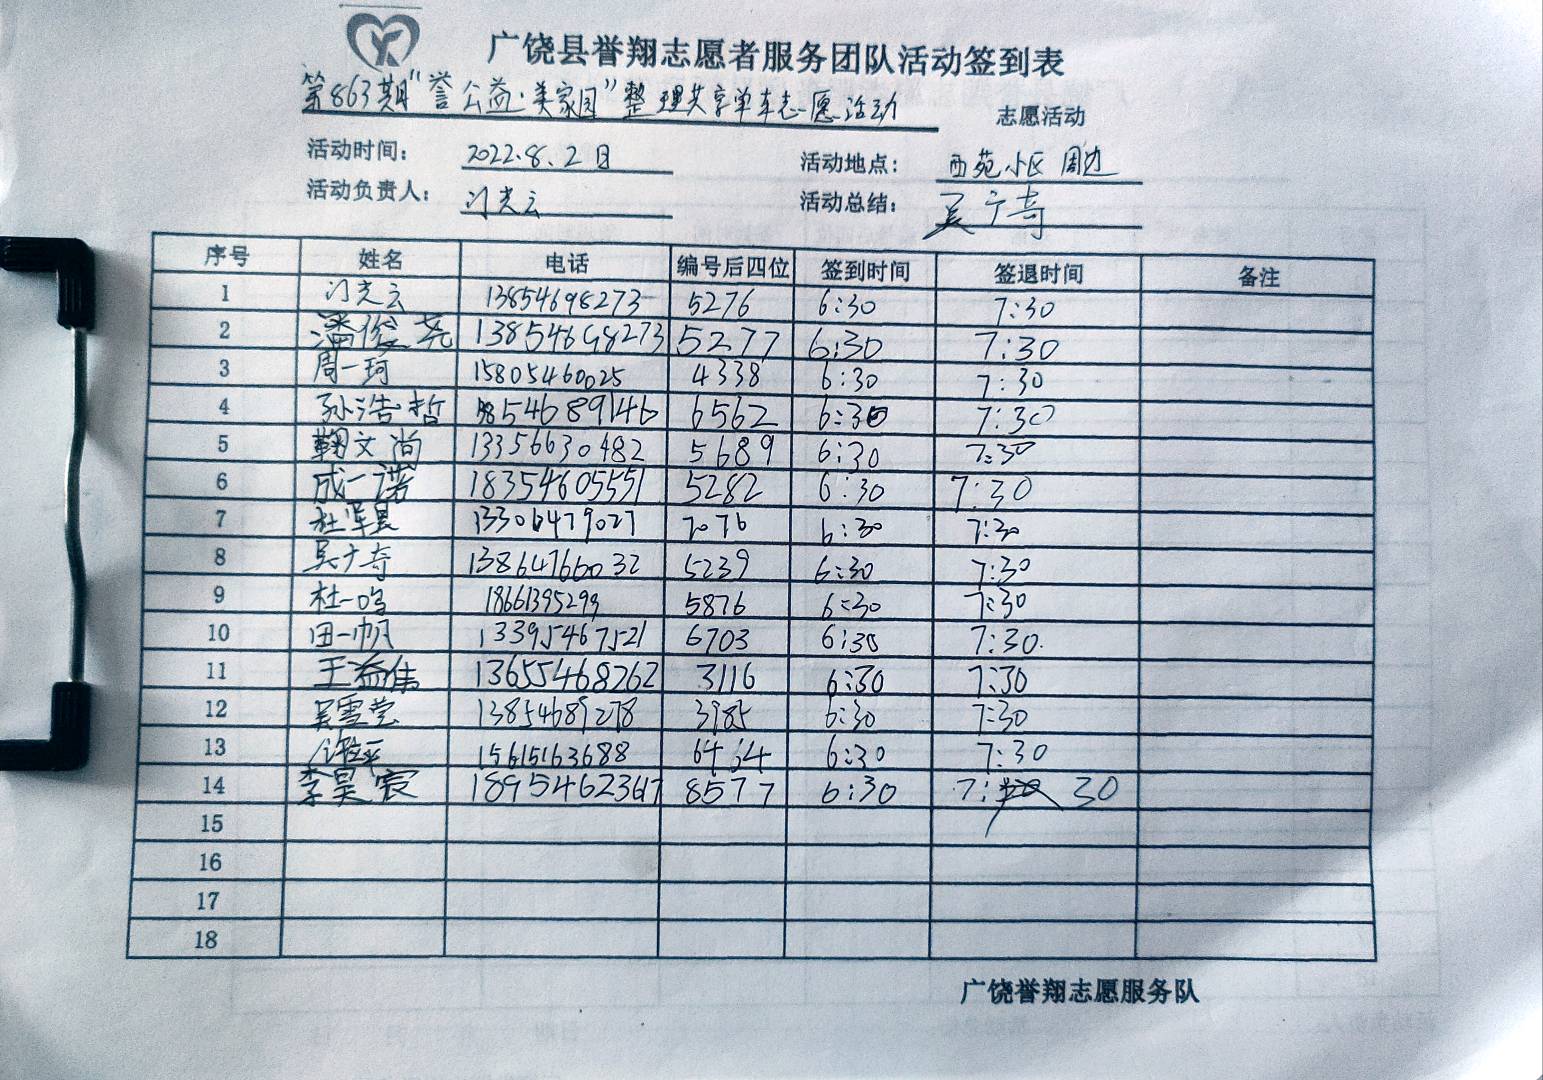 广饶县誉翔志愿者服务团队活动签到表
第863期"誉公益·美家园"整理共享单车志愿活动 志愿活动
活动时间： 2022.8.2日 活动地点： 西苑小区周边
活动负责人： 门光云 活动总结： 吴宁奇
序号 姓名 电话 编号后四位 签到时间 签退时间 备注
1 门光云 13854698273 5276 6:30 7:30
2 潘俊尧 13854698273 5277 6:30 7:30
3 周一珂 15805460025 4338 6:30 7:30
4 孙浩哲 54689146 6562 6:30 7:30
5 鞠文尚 13356630482 5689 6:30 7:30
6 成一诺 18354605551 5282 6:30 7:30
7 杜军昊 13306479027 7076 6:30 7:30
8 吴宁奇 13864766032 5239 6:30 7:30
9 杜一鸣 18661395299 5876 6:30 7:30
10 田一帆 13395467521 6703 6:30 7:30
11 王益伟 13655468262 3116 6:30 7:30
12 吴雪莹 13854689278 3985 6:30 7:30
13 15615163688 6464 6:30 7:30
14 李昊宸 8577 6:30 7:30
15
16
17
18
广饶誉翔志愿服务队